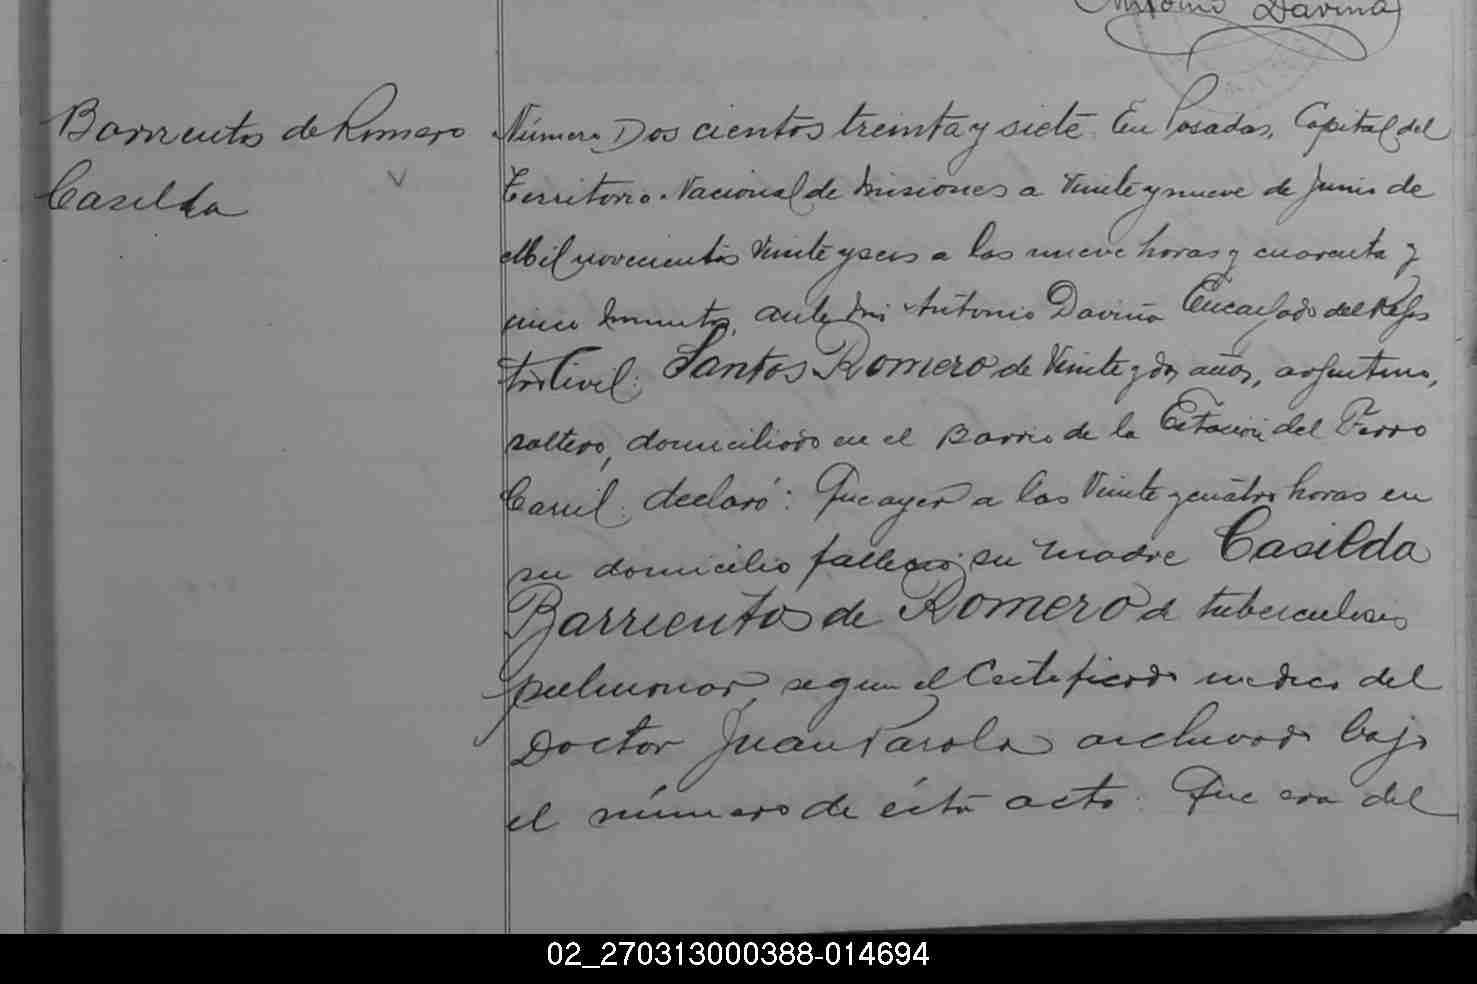 Antonio Daviña
Barrientos de Romero
Casilda
Número Dos cientos treinta y siete En Posadas, Capital del
Territorio Nacional de Misiones a Veinte y nueve de Junio de
Mil novecientos Veinte y seis a las nueve horas y cuarenta y
cinco minutos, ante mi Antonio Daviña Encargado del Regis
tro Civil: Santos Romero de Veinte y dos años, argentino,
soltero, domiciliado en el Barrio de la Estación del Ferro
Carril: declaró: Que ayer a las Veinte y cuatro horas en
su domicilio falleció su madre Casilda
Barrientos de Romero de tuberculosis
pulmonar, segun el Certificado medico del
Doctor Juan Parola archivado bajo
el número de ésta acta: Que era del
02_270313000388-014694